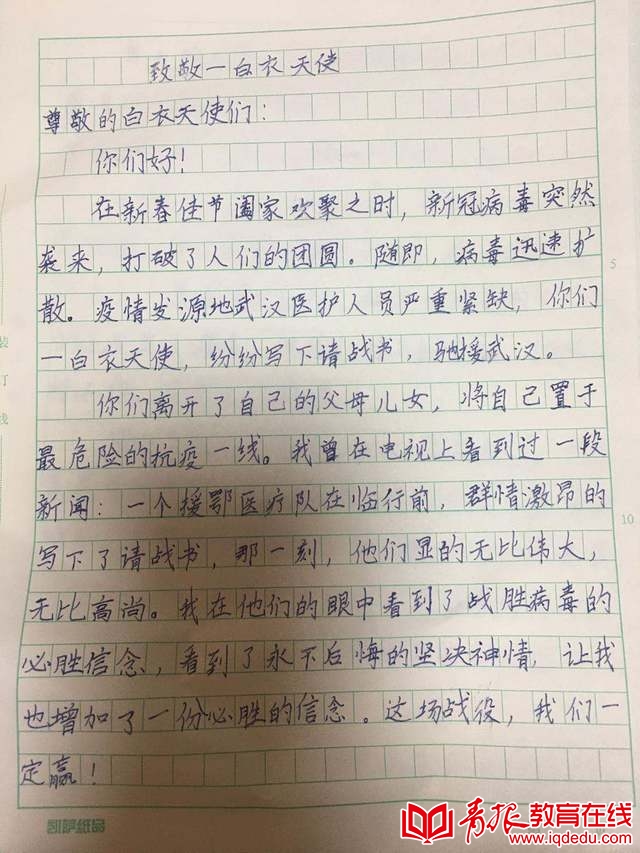 致敬一白衣天使
尊敬的白衣天使们：
你们好！
在新春佳节阖家欢聚之时，新冠病毒突然
袭来，打破了人们的团圆。随即，病毒迅速扩
散。疫情发源地武汉医护人员严重紧缺，你们
一白衣天使，纷纷写下请战书，驰援武汉。
你们离开了自己的父母儿女，将自己置于
最危险的抗疫一线。我曾在电视上看到过一段
新闻：一个援鄂医疗队在临行前，群情激昂的
写下了请战书，那一刻，他们显的无比伟大，
无比高尚。我在他们的眼中看到了战胜病毒的
必胜信念，看到了永不后悔的坚决神情，让我
也增加了一份必胜的信念。这场战役，我们一
定赢！
5
10
装
订
线
凯萨纸品
青报教育在线
www.iqdedu.com